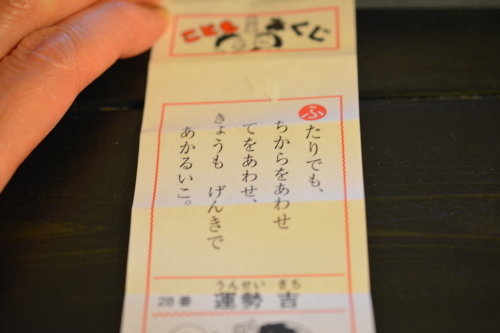 こどもくじ
ふたりでも、
ちからをあわせ
てをあわせ、
きょうも げんきで
あかるいこ。
うんせい きち
28番 運勢 吉